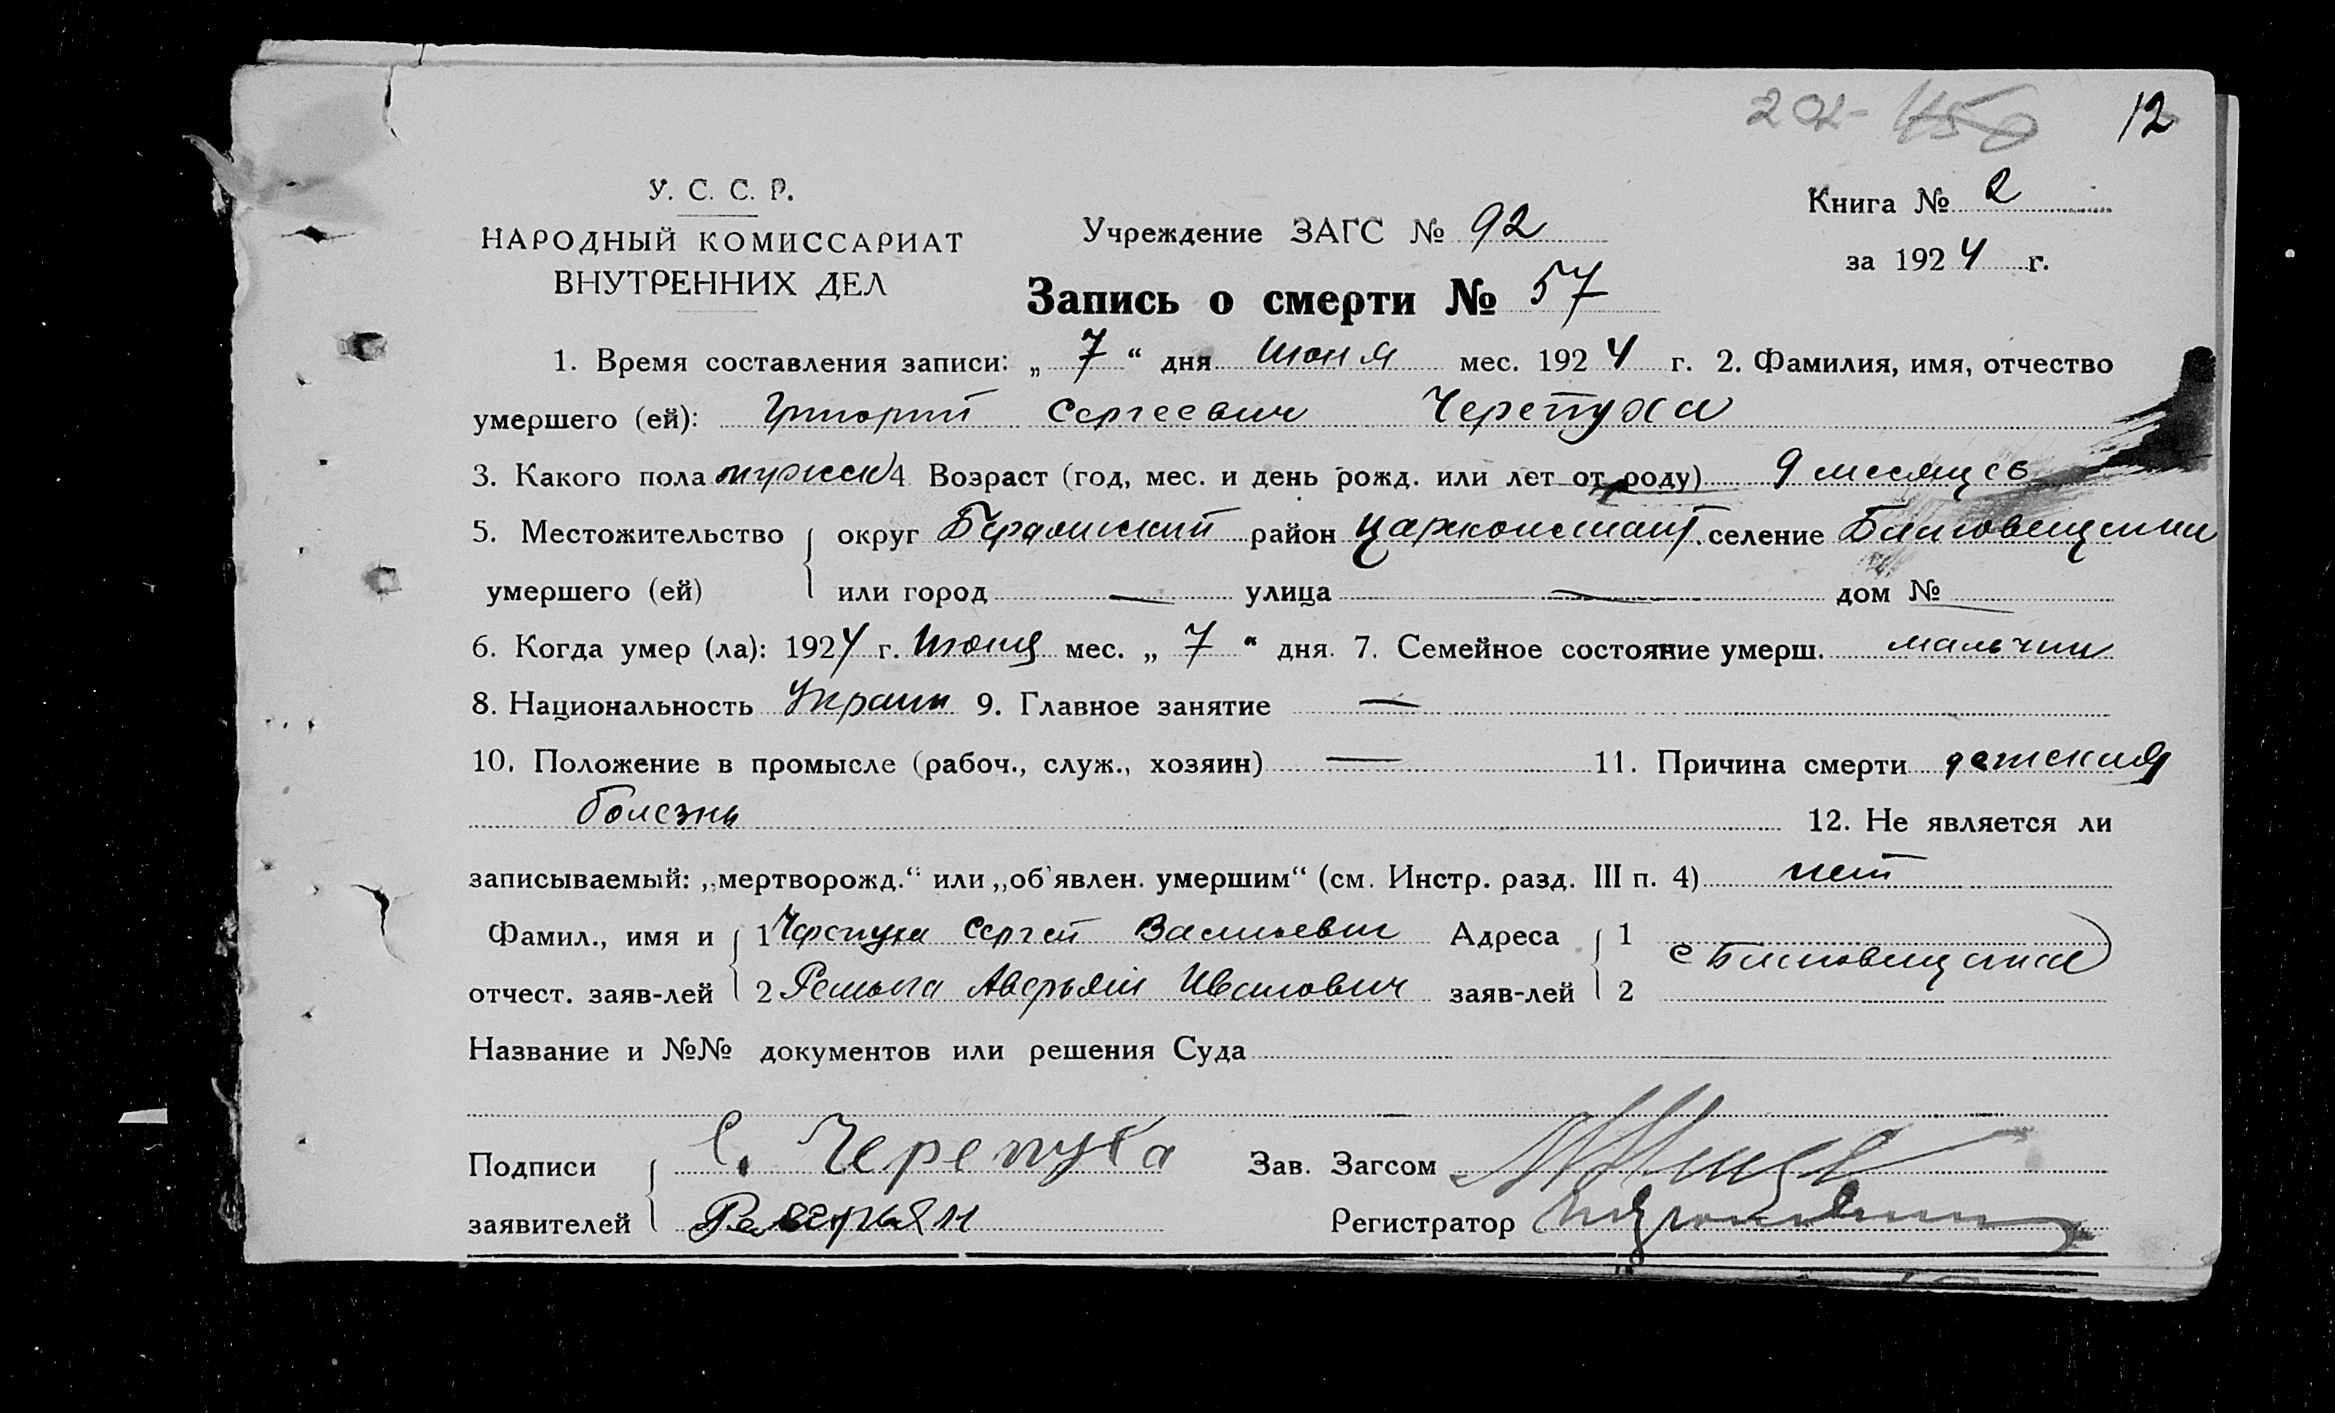 202- 12
У. С. С. Р.
НАРОДНЫЙ КОМИССАРИАТ
ВНУТРЕННИХ ДЕЛ
Учреждение ЗАГС № 92
Книга № 2
за 1924 г.
Запись о смерти № 57
1. Время составления записи: „ 7 “ дня июня мес. 1924 г. 2. Фамилия, имя, отчество
умершего (ей): Григорий Сергеевич Черепуха
3. Какого пола мужск 4 Возраст (год, мес. и день рожд. или лет от роду) 9 месяцев
5. Местожительство округ Бердянский район Царконстант. селение
умершего (ей) или город — улица — дом № —
6. Когда умер (ла): 1924 г. Июня мес. „ 7 “ дня. 7. Семейное состояние умерш. мальчик
8. Национальность Украин 9. Главное занятие —
10. Положение в промысле (рабоч., служ., хозяин) — 11. Причина смерти детская
болезнь 12. Не является ли
записываемый: „мертворожд.“ или „об'явлен. умершим“ (см. Инстр. разд. III п. 4) нет
Фамил., имя и 1 Черепуха Сергей Васильевич Адреса 1
отчест. заяв-лей 2 Аверьян Иванович заяв-лей 2
Название и №№ документов или решения Суда
Подписи С. Черепуха Зав. Загсом
заявителей Регистратор